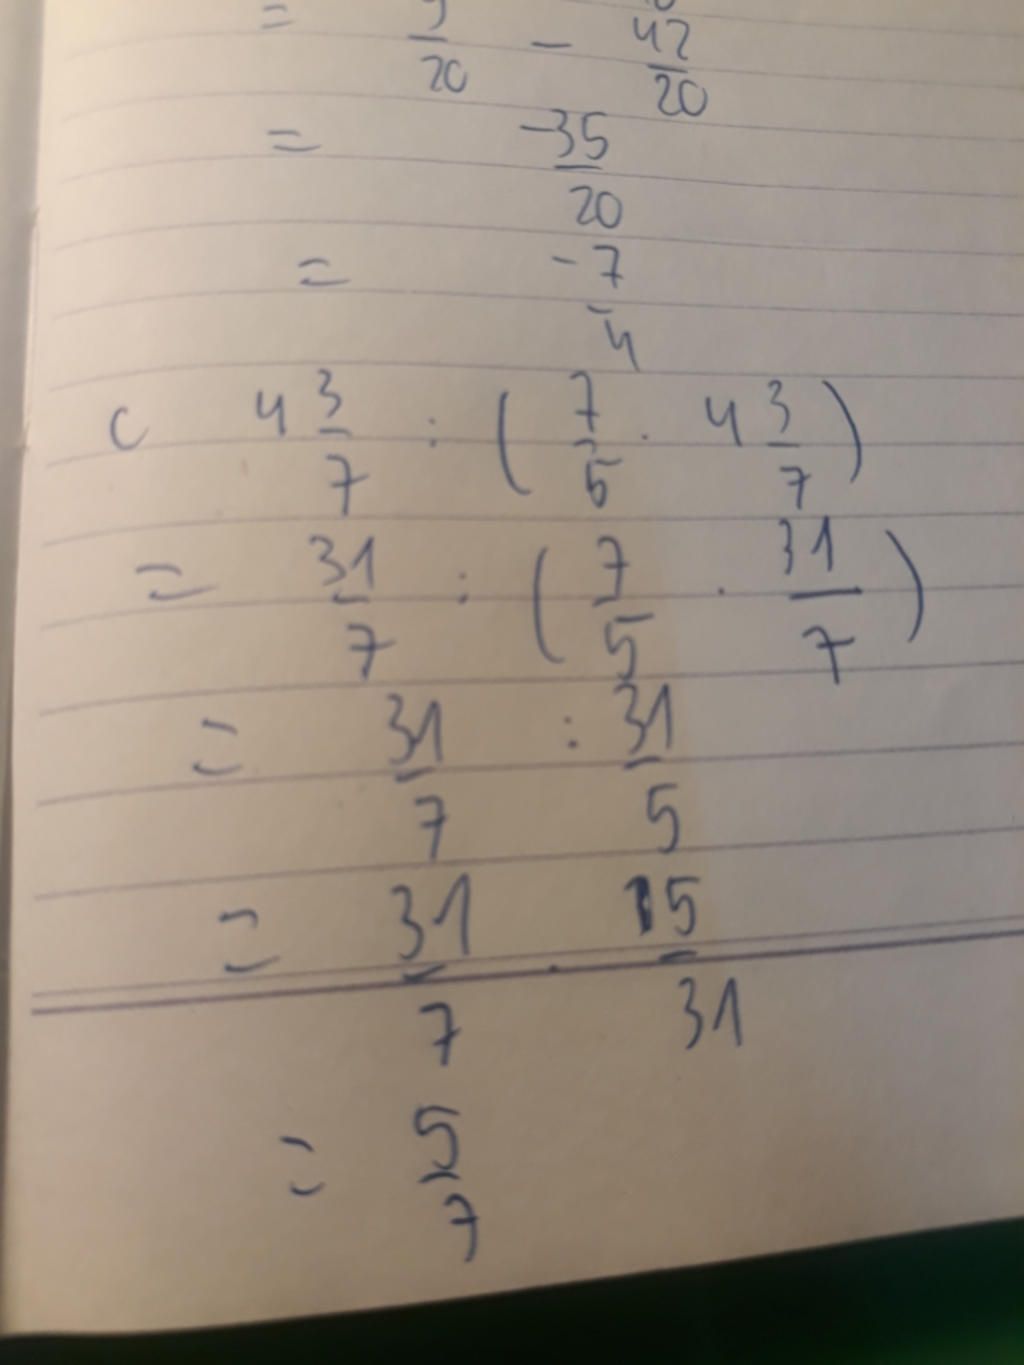 = /20 - 42/20
= -35/20
= -7/4
c 4 3/7 : (7/5 · 4 3/7)
= 31/7 : (7/5 · 31/7)
= 31/7 : 31/5
= 31/7 · 5/31
= 5/7